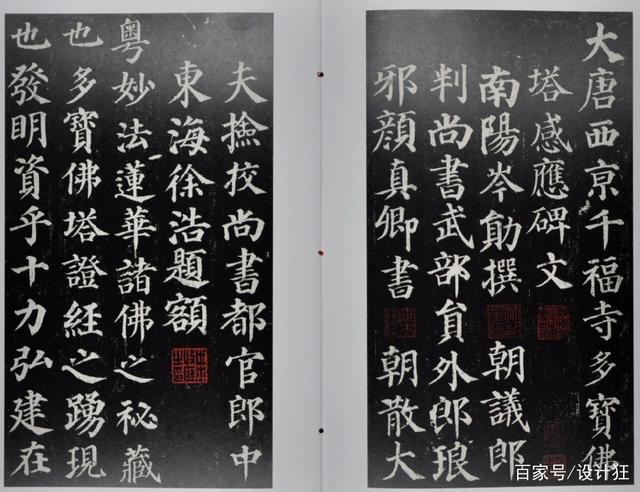 大唐西京千福寺多寶佛
塔感應碑文
南陽岑勛撰 朝議郎
判尚書武部員外郎琅
邪顏真卿書 朝散大
夫撿校尚書都官郎中
東海徐浩題額
粵妙法蓮華諸佛之秘藏
也多寶佛塔證經之踴現
也發明資乎十力弘建在
百家号/设计狂